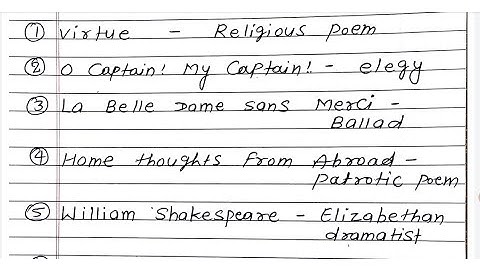 ① Virtue - Religious Poem
② O Captain! My Captain! - elegy
③ La Belle Dame sans Merci -
Ballad
④ Home thoughts From Abroad -
Patrotic poem
⑤ William Shakespeare - Elizabethan
dramatist